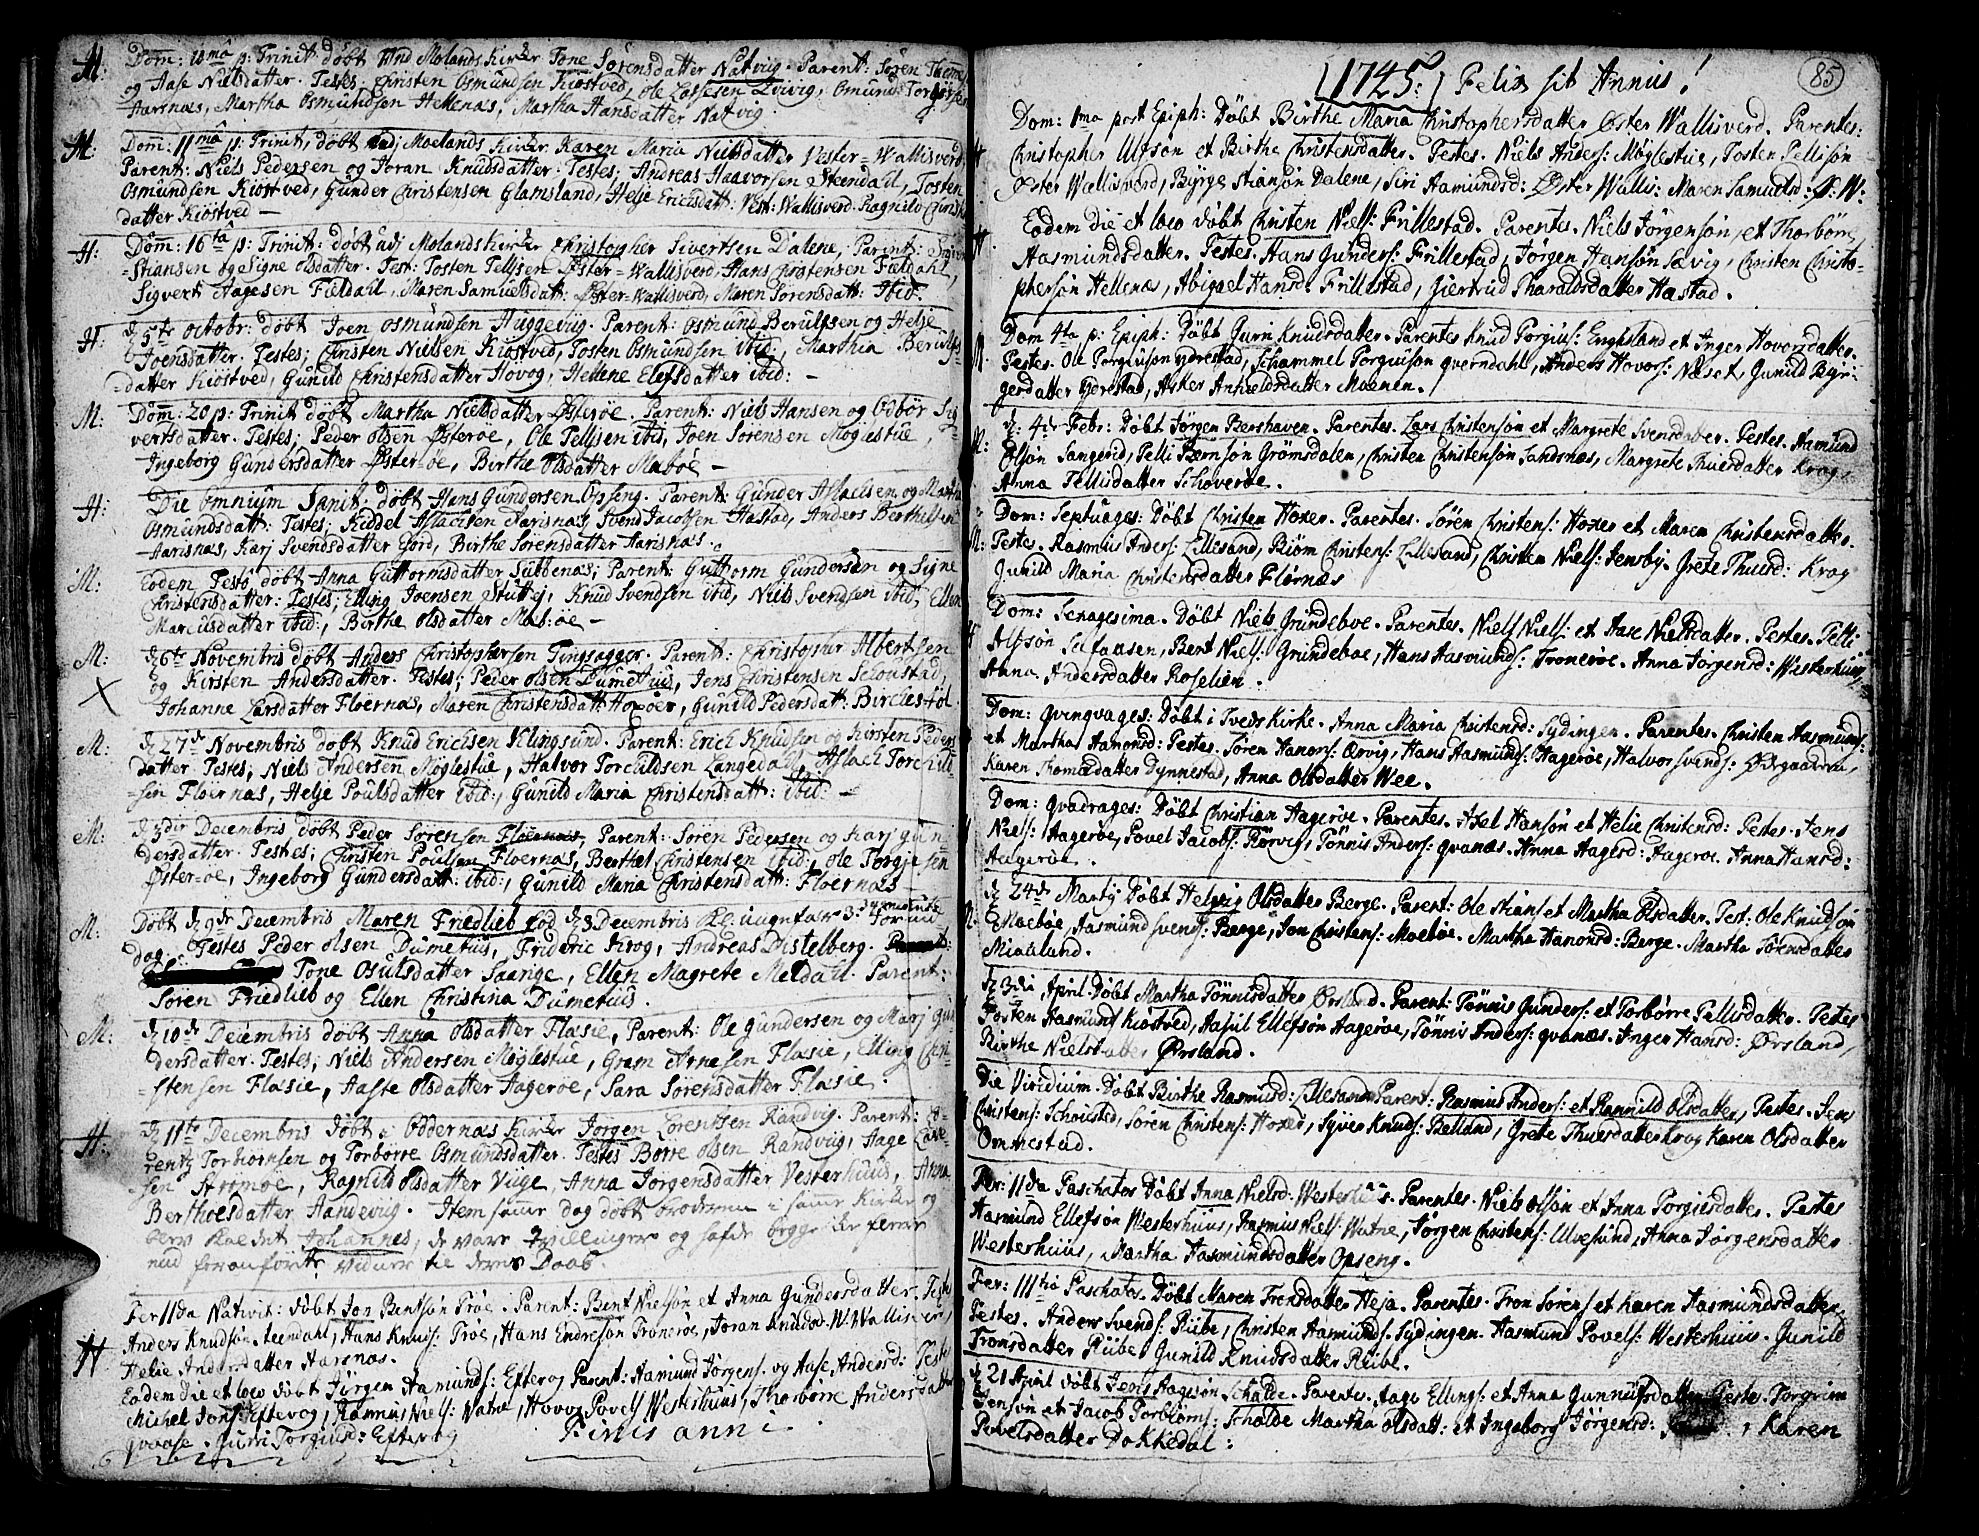 H: Dom: 10mâ p: Trinit: døbt Ved Molands Kirke Tone Sörensdatter Natvug. Parent: Sören
og Aase Nielsdatter. Testes, Christen Osmundsen Kiöstved, Ole Osmund Torgersen
Aarsnæs, Martha Osmundsen Hellenæs, Martha Hansdatter Natvig.
H: Dom: 11mâ p: Trinit, døbt udj Moelands Kirke Karen Maria Nielsdatter Vester-Wallisverd,
Parent: Niels Pedersen og Joran Knudsdatter. Testes; Andreas Haavorsen Steendahl, Tosten
Osmundsen Kiöstved, Gunder Christensen Glamsland, Helje Erichsdatt: Vest: Wallisverd. Ragnild
datter Kiöstved -
H: Dom: 16tâ p: Trinit: døbt udj Molands Kirke Christopher Sivertsen Dalene, Parent: Sigvert
Stiansen og Signe olsdatter. Test: Tosten Tellisen Øster-Wallisverd. Hans Christensen Fældahl,
Sigvert Aagesen Fældahl, Maren Samuelsdatt: Øster-Wallisverd, Maren Sörensdatt: Ibid.
H: d 5te octobr: døbt Joen Osmundsen Huggeviig. Parent: Osmund Berulfsen og Helje
Joensdatter. Testes; Christen Nielsen Kiöstved, Tosten Osmundsen ibid, Marthia Berulfs-
datter Kiöstved, Gunild Christensdatter Hovog, Hellene Elefsdatter ibid: -
M: Dom: 20 p: Trinit døbt Martha Nielsdatter Østerøe. Parent: Niels Hansen og Odbör Sig-
vertsdatter. Testes; Peder olsen Østerøe, Ole Tellisen ibid, Joen Sörensen Møglestue,
Ingeborg Gundersdatter Østerøe, Birthe Olsdatter Mabøe -
H: Die Omnium Sanct: døbt Hans Gundersen Opseng. Parent: Gunder Aslachsen og Martha
Osmundsdatt: Testes; Kiddel Aslachsen Aarisnæs, Svend Jacobsen Hæstad, Anders Berthelsen
Aarisnæs, Karj Svendsdatter Gord, Birthe Sörensdatter Aarisnæs.
M: Eodem Festo døbt Anna Guttormsdatter Subbenæs; Parent: Guttorm Gundersen og Signe
Christensdatter: Testes; Elling Joensen Stuttej, Knud Svendsen ibid, Niels Svendsen ibid, Ellen
Marcusdatter ibid:, Birthe Olsdatter Mabøe -
M: d 6te Novembris døbt Anders Christophersen Tingsagger. Parent: Christopher Albertsen
og Kirsten Andersdatter. Testes; Peder olsen Dumetius, Jens Christensen Schoustad,
X Johanne Larsdatter Floernæs, Maren Christensdatt: Hoxøer, Gunild Pedersdatt: Birchestöl.
M: d 27de Novembris døbt Knud Erichsen Klingsund. Parent: Erich Knudsen og Kirsten Peders
datter. Testes; Niels Andersen Møglestue, Halvor Torchildsen Langedahl, Aslach Torchild
sen Floernæs, Helje Poulsdatter ibid:, Gunild Maria Christensdatt: Ibid: -
M: d 3die Decembris døbt Peder Sörensen Floernæs, Parent: Sören Pedersen og Karj Gun-
dersdatter. Testes; Christen Poulsen Floernæs, Berthel Christensen ibid:, Ole Torgesen
Østerøe, Ingeborg Gundersdatt: ibid:, Gunild Maria Christensdatt: Floernæs -
M: Døbt d 9de Decembris Maren Friedlieb föd d 3 Decembris
dag. Testes Peder olsen Dumetius, Frideric Krog, Andreas Distelberg.
Tone Osulsdatter Saange, Ellen Magrete Meldahl. Parent:
Sören Friedlieb og Ellen Christina Dumetius.
M: d 10de Decembris døbt Anna Olsdatter Flasie, Parent: Ole Gundersen og Marj Gun
dersdatter. Testes; Niels Andersen Møglestue, Gram Arnesen Flasie, Elling Chri-
stensen Flasie, Aaste Olsdatter Aagerøe, Sara Sörensdatter Flasie.
H: d 11te Decembris døbt i Oddernæs Kirke Jörgen Lorentzen Randvig. Parent: Lo-
rentz Torbiornsen og Torbörre Osmundsdatter. Testes Börre olsen Randvug, Aage
sen Strømøe, Ragnild olsdatter Viige, Anna Jörgensdatter Vesterhuus, Anna
Berthelsdatter Haanevug. Item samme dag døbt broderen i samme Kirke og
blev kaldet Johannes, de vare Tvillinger og hafde begge de samme
nu foranförte vidner til deres Daab.
Fer 11da Nativit: døbt Jon Bentsön Trøe. Parent: Bent Nielsön et Anna Gundersdatter. Testes
Anders Knudsön Steendahl, Hans Knuds: Trøe, Hans Endresön Tronerøe, Joran Knudsd: W. Wallisverd,
Helie Andersdatter Aarsnæs.
H Eodem die et loco døbt Jörgen Aamunds: Eftevog Parent: Aamund Jörgens. og Aase Andersd: Testes
Michel Jons: Eftevog, Rasmus Niels: Watne, Hovor Povels Westerhuus, Thorbörre Andersdatter
Qvaase. Gurri Torgiusd: Eftevog
Finis anni
85
(1745:) Felix sit Annus!
Dom: 1ma post Epiph: Döbt Birthe Maria Christophersdatter Øster Wallisverd. Parentes:
H Christopher Ulfsön et Birthe Christensdatter. Testes. Niels Anders: Møglestue, Tosten Tellisön
Øster Wallisverd, Byrge Stiansön Dalene, Siri Aamundsd: Øster Wallis: Maren Samuelsd: Ø: W.
Eodem die et loco döbt Christen Niels: Frillestad. Parentes. Niels Jörgensön, et Thorbörre
H. Aasmundsdatter. Testes. Hans Gunders: Frillestad, Jörgen Hansön Sævig, Christen Christo-
phersön Hellenæs, Abigael Hansd: Frillestad, Giertrud Tharaldsdatter Hæstad.
Dom 4ta p: Epiph: Döbt Gurri Knudsdatter. Parentes Knud Torgius: Enghsland et Inger Hovorsdatter.
M. Testes. Ole Torgiusön Ydrestad, Schammel Torgiusön Qverndahl, Anders Hovors: Næset, Gunild Byr-
gersdatter Ydrestad, Asker Anhieldsdatter Moenen.
d: 4de Febr: Döbt Jörgen Beershaven. Parentes. Lars Christensön et Margrete Svensdatter. Testes. Aamund
M: Olsön Sangerid, Pelli Biörnsön Grömsdalen, Christen Christensön Sandsnæs, Margrete Thuesdatter Krog,
Anna Tellisdatter Schoverøe.
Dom: Septuages: Döbt Christen Hoxer. Parentes. Sören Christens: Hoxer et Maren Christensdatter.
M: Testes. Rasmus Anders: Lillesand, Biörn Christens: Lillesand, Christen Niels: Jensby. Grete Thuesd: Krog
Gunild Maria Christensdatter Flörnæs
Dom: Sexagesima. Döbt Niels Grundeboe. Parentes. Niels Niels: et Aase Nielsdatter. Testes. Pelli
H Alfsön Bent Niels: Grundeboe, Hans Aasmunds: Tronerøe. Anna Jörgensd: Westerhuus,
Anna Andersdatter Roselien.
Dom: Qvinqvages: Döbt i Tveds Kirke. Anna Maria Christensd: Sydingen. Parentes. Christen Aasmunds:
et Martha Hanonsd: Testes. Sören Hanons: Qvrvig, Hans Aasmunds: Aagerøe, Halvor Svends: Ødegaarden,
Karen Thomædatter Dynnestad, Anna Olsdatter Wee.
Dom: Qvadrages: Döbt Christian Aagerøe. Parentes. Axel Hansön et Helie Christensd: Testes. Jens
Niels: Aagerøe, Povel Jacobs: Rörvig, Tönnis Anders: Qvanæs. Anna Aagesd: Aagerøe. Anna Hansd:
Aagerøe.
d 24de Martij Döbt Helvig Olsdatter Berge. Parent: Ole Stians: et Martha Olsdatter. Test: Ole Knudsön
Moeböe, Aasmund Svends: Berge, Jon Christens: Moeböe. Martha Hanonsd: Berge. Martha Sörensdatter
Miaaland.
d 3die April. Döbt Martha Tönnisdatter Örsland. Parent: Tönnis Gunders: et Torbörre Tellisdatter. Testes
Tosten Aasmunds Kiöstved, Aasul Ellefsön Aagerøe, Tönnis Anders: Qvanæs. Inger Hansd: Örsland,
Birthe Nielsdatter Örsland.
Die Viridium. Döbt Birthe Rasmusd: Lillesand. Parent: Rasmus Anders: et Rannild Olsdatter, Testes. Jens
Christens: Schousted, Sören Christens: Hoxer, Syver Knuds: Belland, Grete Thuesdatter Krog Karen Olsdatter
Omnestad.
Fer: 11da Paschatos Döbt Anna Nielsd: Westerhuus. Parentes. Niels Olsön et Anna Torgiusdatter. Testes
Aasmund Ellefsön Westerhuus, Rasmus Niels: Watne, Jörgen Christens: Ulvesund, Anna Jörgensdatter
Westerhuus, Martha Aasmundsdatter Opseng.
Fer: 111tia Paschatos. Döbt Maren Tronsdatter Heja. Parentes. Tron Sörens: et Karen Aasmundsdatter.
Testes. Anders Svends: Rübe, Christen Aasmunds: Sydingen. Aasmund Povels: Westerhuus. Gunild
Tronsdatter Rübe, Gunild Knudsdatter Rübe.
d 21 April döbt Jens Aagesön Schalde. Parentes. Aage Ellings: et Anna Gunnufsdatter. Testes. Torgrim
Jensön et Jacob Torbiörns: Schalde Martha Olsdatt: et Ingeborg Jörgensd: , Karen
Povelsdatter Dokkedal: